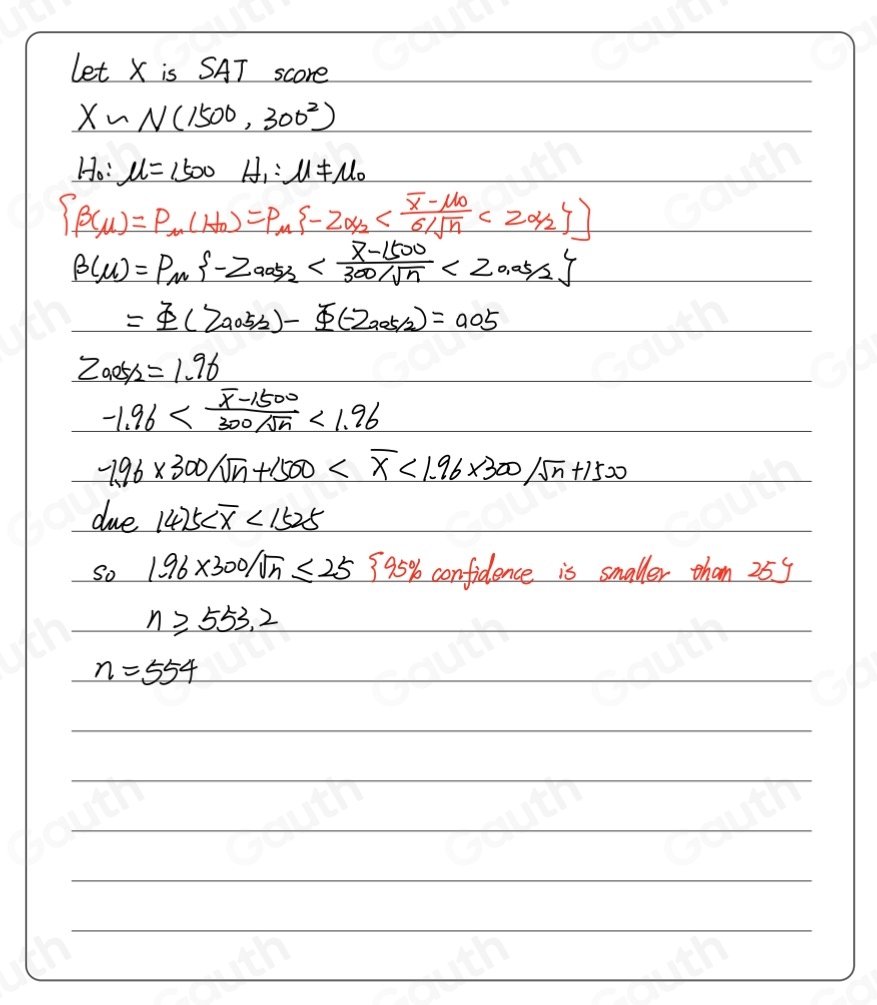 Let X is SAT score
X ~ N(1500, 300²)
H₀: μ=1500 H₁: μ≠μ₀
{β(μ)=Pμ(H₀)=Pμ{-Zα/2 < (x̄-μ₀)/(6/√n) < Zα/2}]
β(μ)=Pμ{-Z0.05/2 < (x̄-1500)/(300/√n) < Z0.05/2}
= Φ(Z0.05/2)-Φ(-Z0.05/2)=0.05
Z0.05/2=1.96
-1.96 < (x̄-1500)/(300/√n) < 1.96
-1.96×300/√n+1500 < x̄ < 1.96×300/√n+1500
due 1475<x̄<1525
so 1.96×300/√n ≤25 {95% confidence is smaller than 25}
n ≥ 553.2
n=554